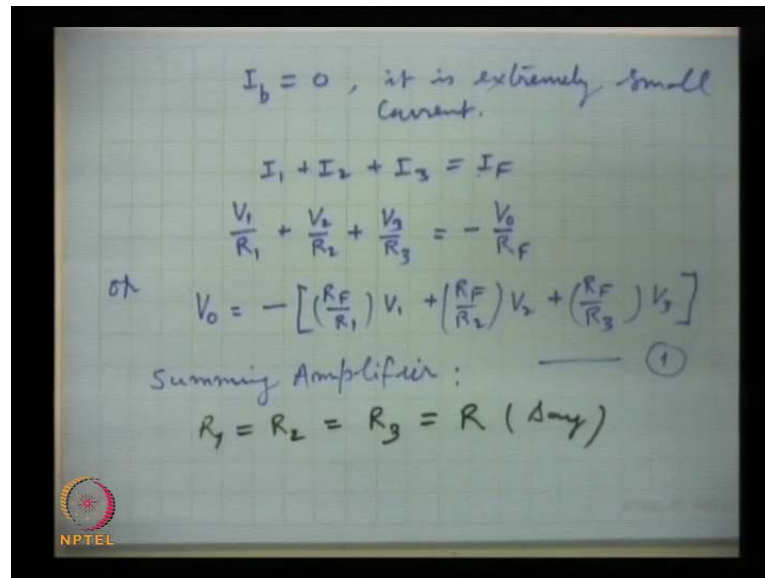 I_b = 0, it is extremely small
Current.
I_1 + I_2 + I_3 = I_F
V_1/R_1 + V_2/R_2 + V_3/R_3 = - V_0/R_F
or V_0 = - [(R_F/R_1) V_1 + (R_F/R_2) V_2 + (R_F/R_3) V_3]
Summing Amplifier: —— (1)
R_1 = R_2 = R_3 = R (Say)
NPTEL